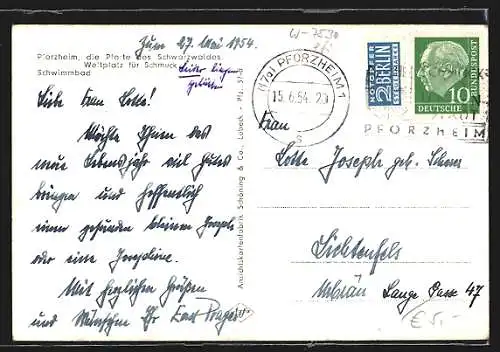 Zum 27. Mai 1954.
W-7530
Pforzheim, die Pforte des Schwarzwaldes
Weltplatz für Schmuck
Schwimmbad
leider liegen
geblieben
Liebe Frau Lotte!
Möchte Ihnen das
neue Lebensjahr viel Gutes
bringen und hoffentlich
einen gesunden kleinen Joseph
oder eine Josefine.
Mit herzlichen Grüßen
und Wünschen Ihr
Ansichtskartenfabrik Schöning & Co., Lübeck - Pfz. 57-b
(17a) PFORZHEIM 1
15.6.54. 20
s
NOTOPFER
2 BERLIN
STEUERMARKE
DEUTSCHE
BUNDESPOST
10
PFORZHEIM
Frau
Lotte Joseph geb.
Lichtenfels
Lange Gasse 47
€ 5,-